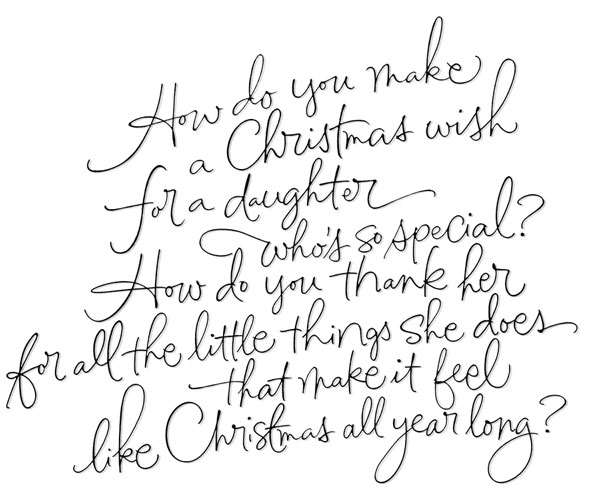 How do you make
a Christmas wish
for a daughter
who's so special?
How do you thank her
for all the little things she does
that make it feel
like Christmas all year long?